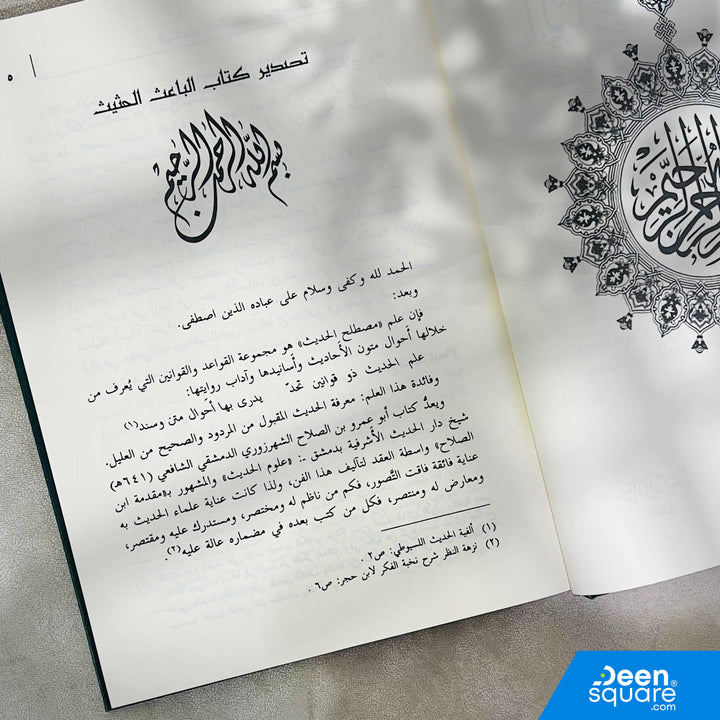 ٥
تصدير كتاب الباعث الحثيث
بسم الله الرحمن الرحيم
الحمد لله وكفى وسلام على عباده الذين اصطفى.
وبعد:
فإن علم «مصطلح الحديث» هو مجموعة القواعد والقوانين التي يُعرف من
خلالها أحوال متون الأحاديث وأسانيدها وآداب روايتها:
علم الحديث ذو قوانين تحدّ يدرى بها أحوال متن وسند(١)
وفائدة هذا العلم: معرفة الحديث المقبول من المردود والصحيح من العليل.
ويعدُّ كتاب أبو عمرو بن الصلاح الشهرزوري الدمشقي الشافعي (٦٤١هـ)
شيخ دار الحديث الأشرفية بدمشق ـ: «علوم الحديث» والمشهور بـ«مقدمة ابن
الصلاح» واسطة العقد لتآليف هذا الفن، ولذا كانت عناية علماء الحديث به
عناية فائقة فاقت التَّصور، فكم من ناظم له ومختصر، ومستدرك عليه ومقتصر،
ومعارض له ومنتصر، فكل من كتب بعده في مضماره عالة عليه(٢).
(١) ألفية الحديث اللسيوطي: ص٢ .
(٢) نزهة النظر شرح نخبة الفكر لابن حجر: ص٦ .
Deen
square®
.com